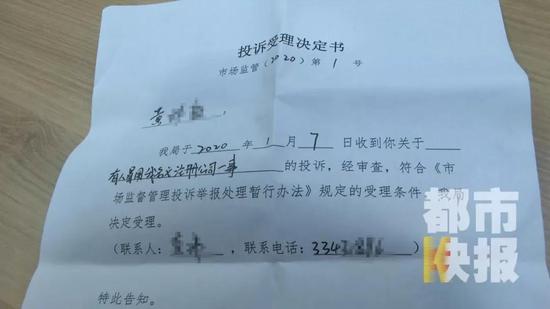 投诉受理决定书
市场监管(2020)第 1 号
黄
我局于 2020 年 1 月 7 日收到你关于
有人冒用我名义注册公司一事 的投诉，经审查，符合《市
场监督管理投诉举报处理暂行办法》规定的受理条件，我局
决定受理。
(联系人： ，联系电话：334 )
特此告知。
都市
快报